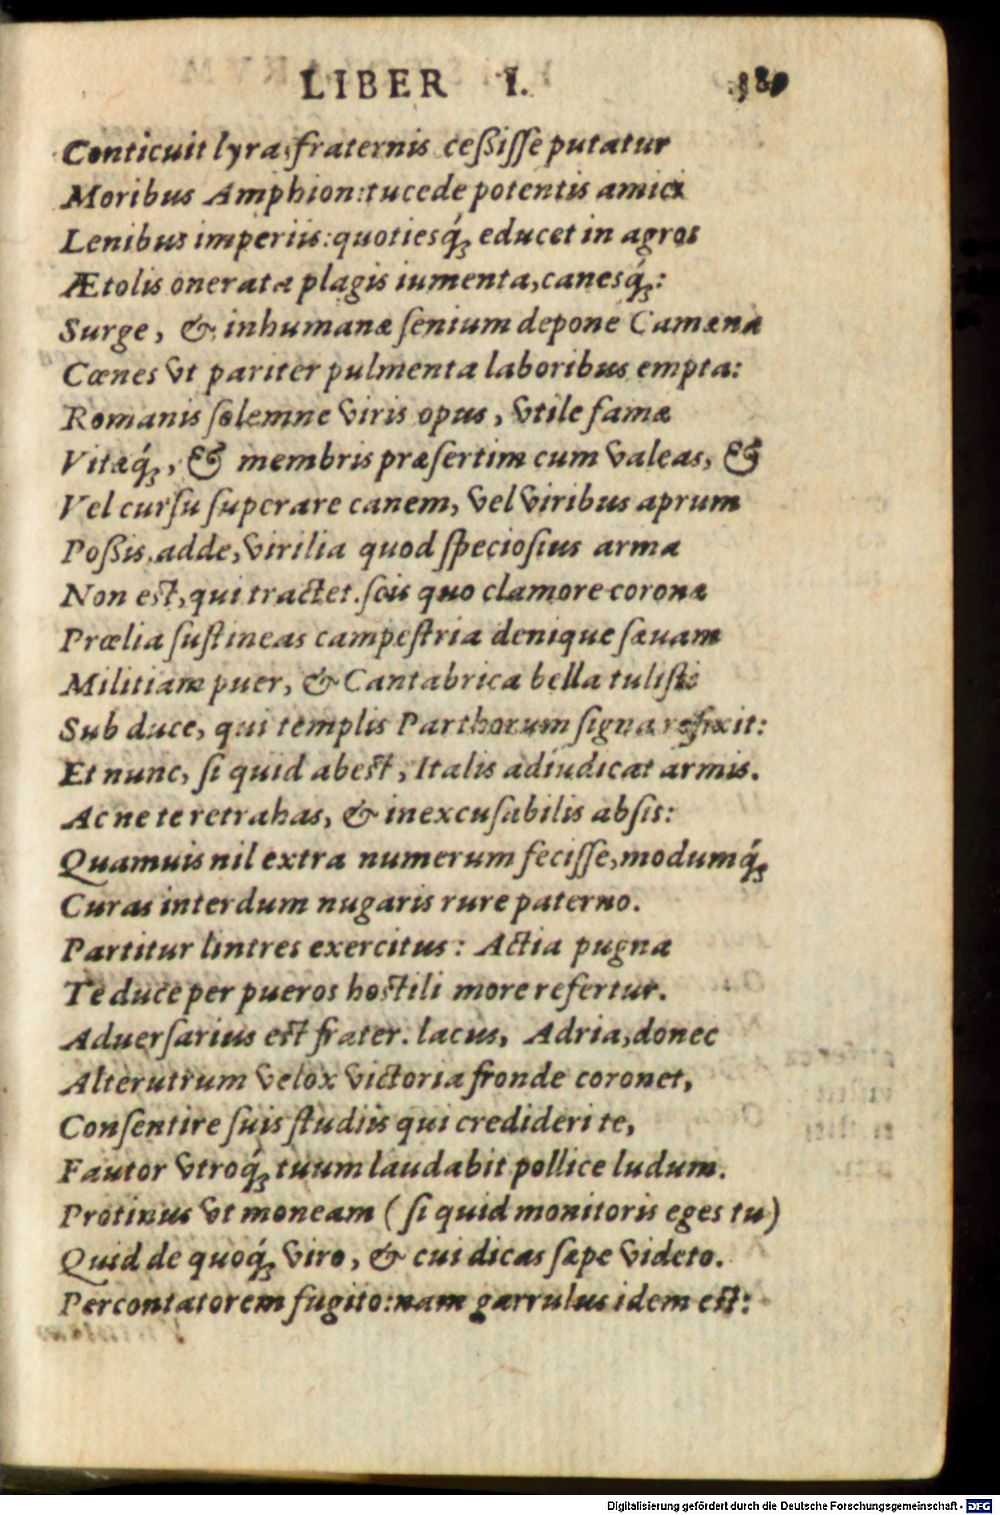 LIBER I. 389
Conticuit lyra, fraternis ceßiſſe putatur
Moribus Amphion: tu cede potentis amici
Lenibus imperiis: quotiesq́ꝫ educet in agros
Ætolis onerata plagis iumenta, canesq́ꝫ:
Surge, & inhumanæ ſenium depone Camænæ
Cœnes vt pariter pulmenta laboribus empta:
Romanis ſolemne viris opus, vtile famæ
Vitæq́ꝫ, & membris præſertim cum valeas, &
Vel curſu ſuperare canem, vel viribus aprum
Poßis. adde, virilia quod ſpecioſius arma
Non eſt, qui tractet. ſcis quo clamore coronæ
Prœlia ſuſtineas campeſtria denique ſæuam
Militiam puer, & Cantabrica bella tuliſti
Sub duce, qui templis Parthorum ſigna refixit:
Et nunc, ſi quid abeſt, Italis adiudicat armis.
Ac ne te retrahas, & inexcuſabilis abſis:
Quamuis nil extra numerum feciſſe, modumq́ꝫ
Curas interdum nugaris rure paterno.
Partitur lintres exercitus: Actia pugna
Te duce per pueros hoſtili more refertur.
Aduerſarius eſt frater. lacus, Adria, donec
Alterutrum velox victoria fronde coronet,
Conſentire ſuis ſtudiis qui crediderit te,
Fautor vtroq́ꝫ tuum laudabit pollice ludum.
Protinus vt moneam (ſi quid monitoris eges tu)
Quid de quoq́ꝫ viro, & cui dicas ſæpe videto.
Percontatorem fugito: nam garrulus idem eſt:
Digitalisierung gefördert durch die Deutsche Forschungsgemeinschaft - DFG